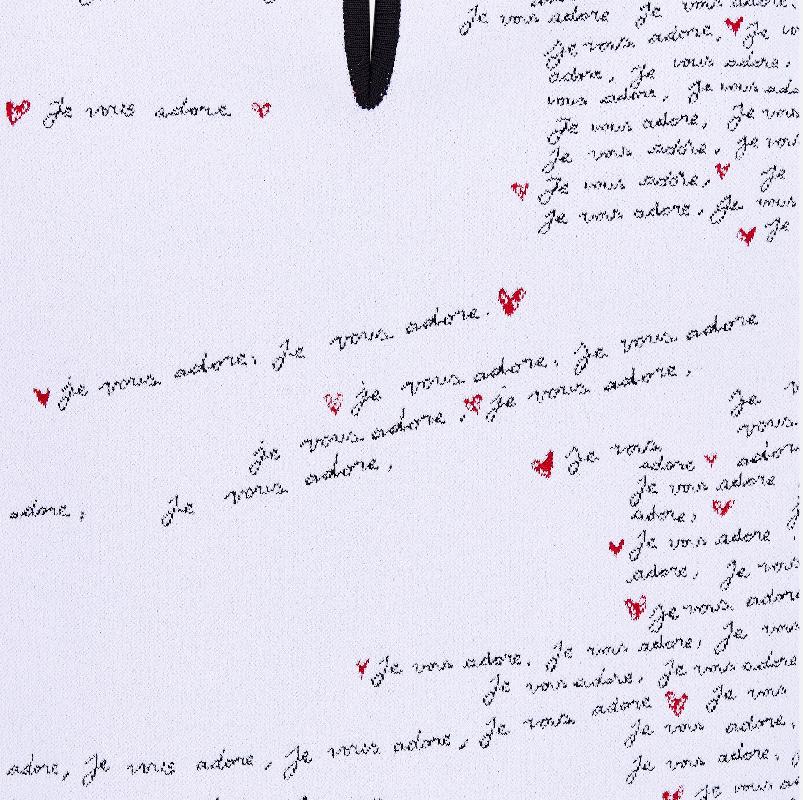 Je vous adore Je vous adore.
Je vous adore, Je
adore, Je vous adore,
vous adore, Je vous
Je vous adore, Je vous
Je vous adore, Je
Je vous adore, Je
Je vous adore, Je vous
Je
Je vous adore
Je vous adore, Je vous adore.
Je vous adore, Je vous adore
Je vous adore, Je vous adore,
Je vous adore,
adore, Je
Je
vous
Je vous
adore
Je vous adore
adore,
Je vous adore
adore, Je vous
Je vous adore
Je vous adore, Je vous adore, Je vous
Je vous adore, Je vous adore
adore, Je vous adore, Je vous adore, Je vous adore Je vous
Je vous adore,
Je vous adore,
Je vous